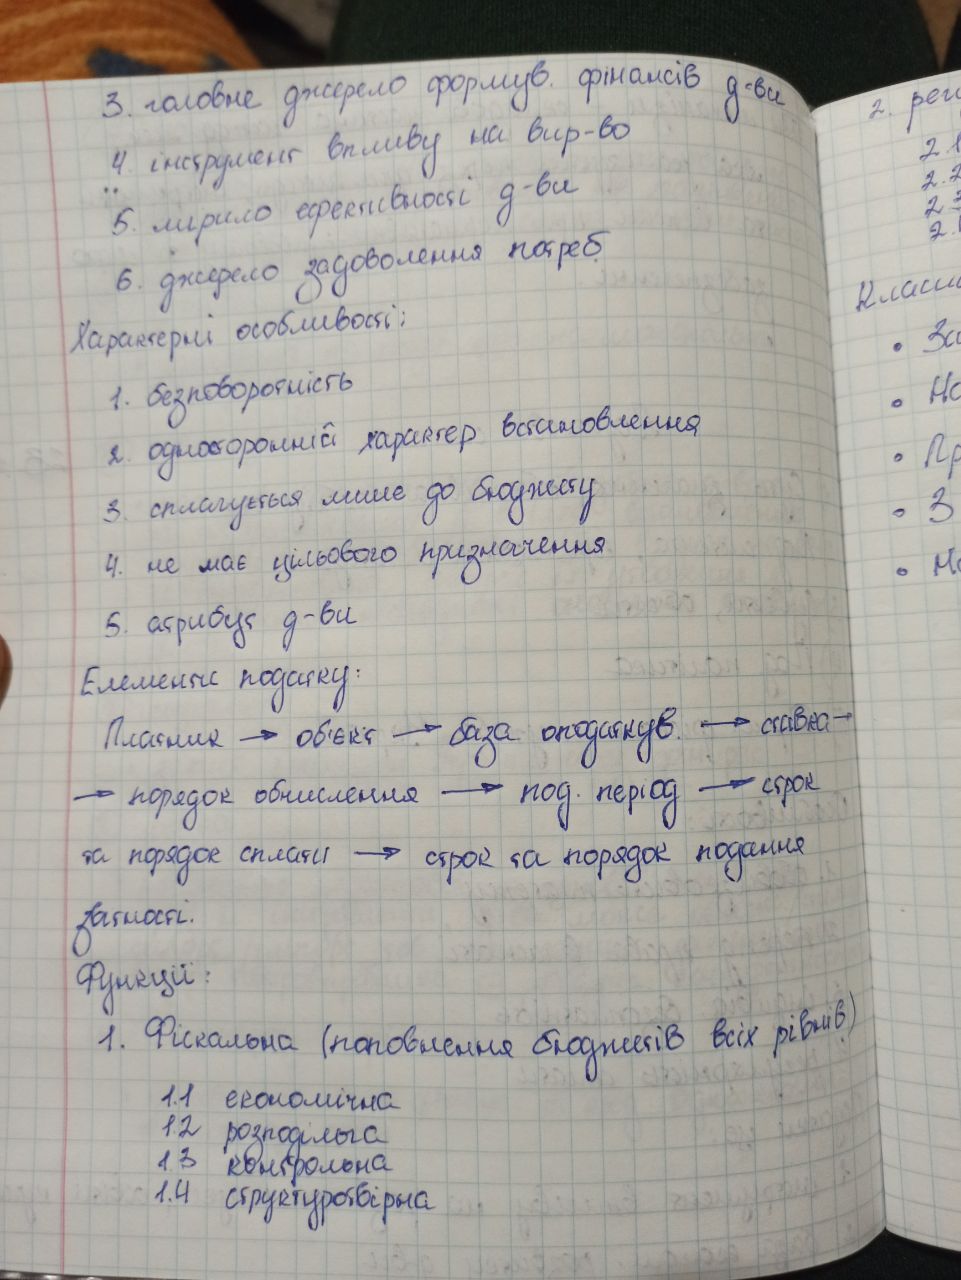 3. головне джерело формув. фінансів д-ви
4. інструмент впливу на вир-во
5. мирило ефективності д-ви
6. джерело задоволення потреб
Характерні особливості:
1. безповоротність
2. односторонній характер встановлення
3. сплачується лише до бюджету
4. не має цільового призначення
5. атрибут д-ви
Елементи податку:
Платник → об'єкт → база оподаткув. → ставка →
→ порядок обчислення → под. період → строк
та порядок сплати → строк та порядок подання
звітності.
Функції:
1. Фіскальна (поповнення бюджетів всіх рівнів)
1.1 економічна
1.2 розподільча
1.3 контрольна
1.4 структуротвірна
2.
2.1
2.2
2.3
2.
• За
• На
• Пр
• З
• На